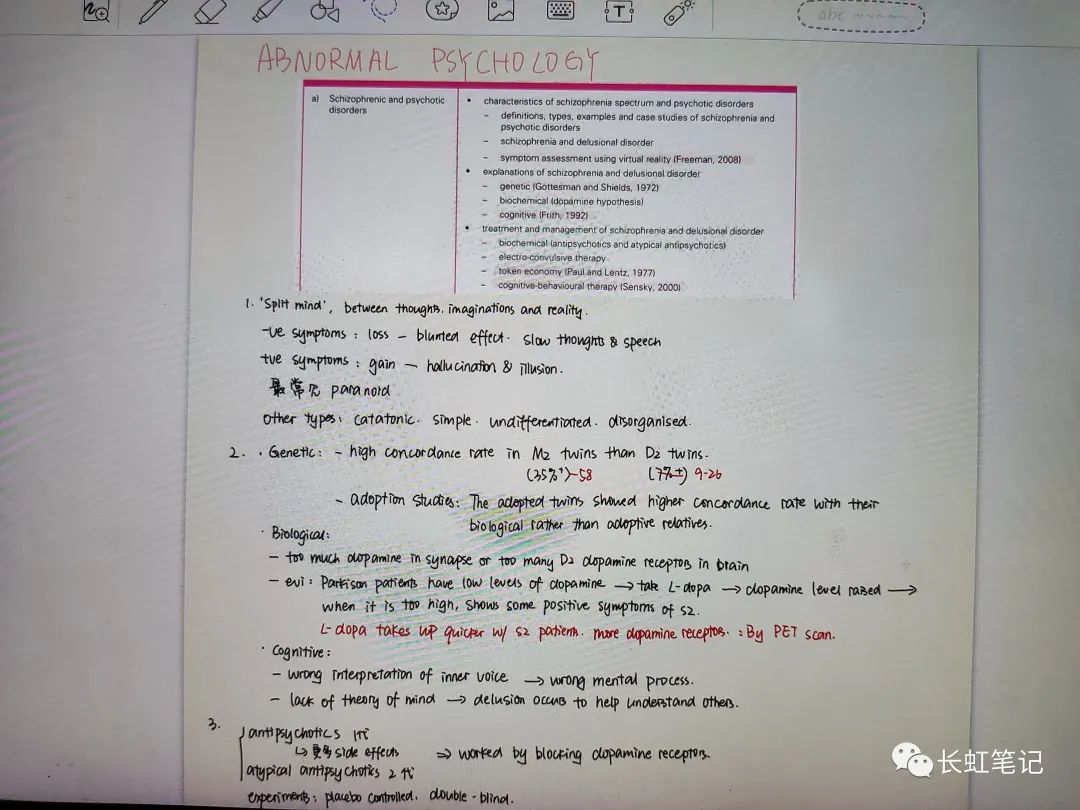 abc
ABNORMAL PSYCHOLOGY
a) Schizophrenic and psychotic disorders
• characteristics of schizophrenia spectrum and psychotic disorders
– definitions, types, examples and case studies of schizophrenia and
psychotic disorders
– schizophrenia and delusional disorder
– symptom assessment using virtual reality (Freeman, 2008)
• explanations of schizophrenia and delusional disorder
– genetic (Gottesman and Shields, 1972)
– biochemical (dopamine hypothesis)
– cognitive (Frith, 1992)
• treatment and management of schizophrenia and delusional disorder
– biochemical (antipsychotics and atypical antipsychotics)
– electro-convulsive therapy
– token economy (Paul and Lentz, 1977)
– cognitive-behavioural therapy (Sensky, 2000)
1. 'Split mind', between thoughts, imaginations and reality.
-ve symptoms : loss – blunted effect. slow thoughts & speech
+ve symptoms : gain – hallucination & illusion.
最常见 paranoid
Other types: catatonic. simple. undifferentiated. disorganised.
2. · Genetic: – high concordance rate in MZ twins than DZ twins.
(35%+)-58 (7%±) 9-26
– adoption studies: The adopted twins showed higher concordance rate with their
biological rather than adoptive relatives.
· Biological:
– too much dopamine in synapse or too many D2 dopamine receptors in brain
– evi: Parkison patients have low levels of dopamine → take L-dopa → dopamine level raised →
when it is too high, shows some positive symptoms of sz.
L-dopa takes up quicker w/ sz patients. more dopamine receptors. : By PET scan.
· Cognitive:
– wrong interpretation of inner voice → wrong mental process.
– lack of theory of mind → delusion occurs to help understand others.
3.
antipsychotics 1代
↳ 更多 side effects ⇒ worked by blocking dopamine receptors.
atypical antipsychotics 2代
experiments: placebo controlled. double-blind.
长虹笔记